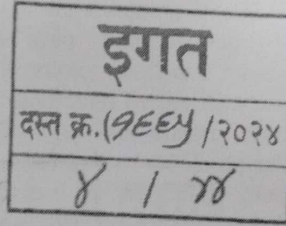 इगत
दस्त क्र.(१६६५/२०२४
४ / ४४